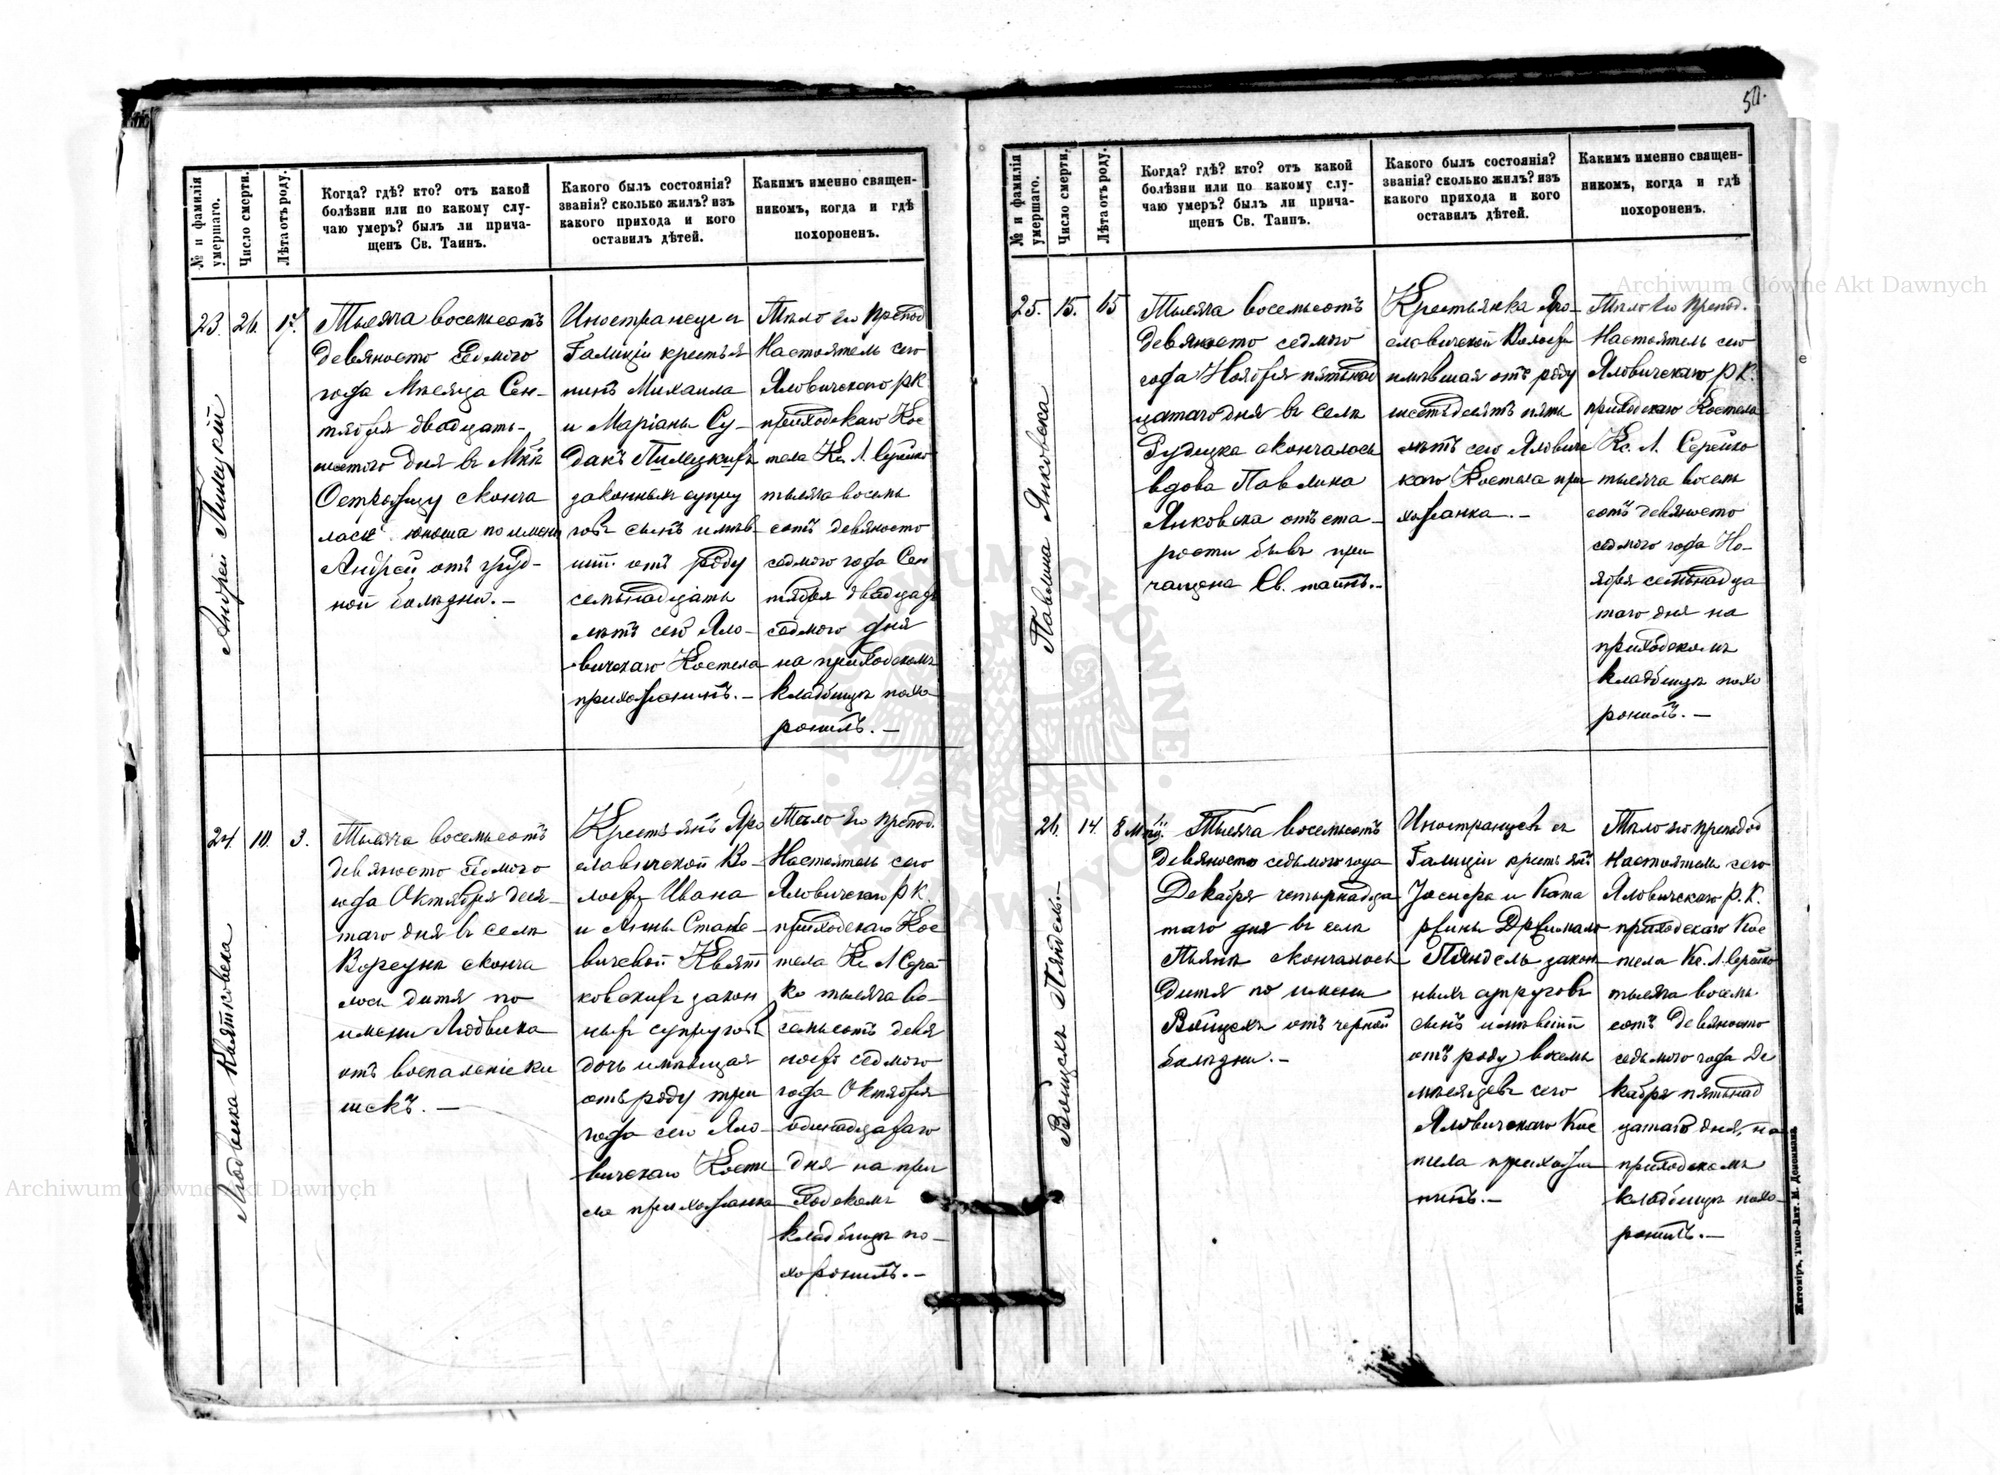 50.
№ и фамилія умершаго.
Число смерти.
Лѣта отъ роду.
Когда? гдѣ? кто? отъ какой
болѣзни или по какому слу-
чаю умеръ? былъ ли прича-
щенъ Св. Таинъ.
Какого былъ состоянія?
званія? сколько жилъ? изъ
какого прихода и кого
оставилъ дѣтей.
Какимъ именно священ-
никомъ, когда и гдѣ
похороненъ.
23.
26.
17.
Андрей Пилецкій
Тысяча восемьсотъ
девяносто седмого
года Мѣсяца Сен-
тября двадцать-
шестого дня въ
сконча
лась юноша по имени
Андрей отъ груд-
ной болѣзни.-
Иностранецъ
Галиціи крестья
нинъ Михаила
и Маріаны Су-
дакъ Пилецкихъ
законныхъ супру
говъ сынъ имѣв
шій отъ роду
семьнадцать
лѣтъ сего Яло-
вичскаго Костела
прихожанинъ.-
Тѣло Его Препод
Настоятель сего
Яловичскаго Р.К.
приходскаго Кос
тела Кс. Л. Серейко
тысяча восемь
сотъ девяносто
седмого года Сен
тября двадцать
седмого дня
на приходскомъ
кладбищѣ похо
ронилъ.-
24
10.
3.
Людвика Квятковска
Тысяча восемьсотъ
девяносто седмого
года Октября деся-
таго дня въ селѣ
сконча
лось дитя по
имени Людвика
отъ воспаленіе ки
шекъ.-
Крестьянъ Яро
славичской Во-
лости Ивана
и Анны
Квят
ковскихъ закон
ныхъ супруговъ
дочь имѣвшая
отъ роду три
года сего Яло-
вичскаго Косте
ла прихожанка
Тѣло Его Препод.
Настоятель сего
Яловичскаго Р.К.
приходскаго Кос
тела Кс. Л Серей
ко тысяча во-
семьсотъ девя
носто седмого
года Октября
одинадцатаго
дня на при
ходскомъ
кладбищѣ по-
хоронилъ.-
№ и фамилія умершаго.
Число смерти.
Лѣта отъ роду.
Когда? гдѣ? кто? отъ какой
болѣзни или по какому слу-
чаю умеръ? былъ ли прича-
щенъ Св. Таинъ.
Какого былъ состоянія?
званія? сколько жилъ? изъ
какого прихода и кого
оставилъ дѣтей.
Какимъ именно священ-
никомъ, когда и гдѣ
похороненъ.
25.
15.
65
Павлина Янковска
Тысяча восемьсотъ
девяносто седмого
года Ноября пятьнад
цатаго дня въ селѣ
Рудецка скончалось
вдова Павлина
Янковска отъ ста-
рости бывъ при
чащена Св. таинъ.-
Крестьянка Яро-
славичской Волости
имѣвшая отъ роду
шестьдесятъ пять
лѣтъ сего Яловичс
каго Костела при
хожанка.-
Тѣло Его Препод.
Настоятель сего
Яловичскаго Р.К.
приходскаго Костела
Кс. Л. Серейко
тысяча восемь
сотъ девяносто
седмого года Но-
ября семьнадца
таго дня на
приходскомъ
кладбищѣ похо
ронилъ.-
26.
14.
8
Войцехъ
Тысяча восемьсотъ
девяносто седьмого года
Декабря четырнадца
таго дня въ селѣ
Пьянѣ скончалось
дитя по имени
Войцехъ отъ черной
болѣзни.-
Иностранцевъ
Галиціи крестьянъ
Іосифа и Ката
закон
ныхъ супруговъ
сынъ имѣвшій
отъ роду восемь
мѣсяцевъ сего
Яловичскаго Кос
тела прихожа
нинъ.-
Тѣло его преподоб
Настоятель сего
Яловичскаго Р.К.
приходскаго Кос
тела Кс. Л. Серейко
тысяча восемь
сотъ девяносто
седьмого года Де
кабря пятьнад
цатаго дня, на
приходскомъ
кладбищѣ похо-
ронилъ.-
Житоміръ, Типо-Лит. М. Дененмана.
Archiwum Główne Akt Dawnych
Archiwum Główne Akt Dawnych